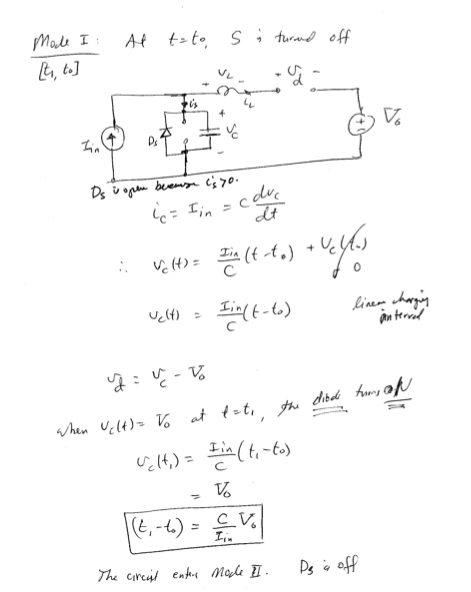 Mode I : At t=t₀, S is turned off
[t₁, t₀]
+ V_L -
+ V_d -
i_s
i_L
I_in
D_s
+
V_c
-
V₀
D_s is open because i_s>0.
i_c = I_in = C dv_c/dt
∴ V_c(t) = I_in/C (t-t₀) + V_c(t₀) 0
V_c(t) = I_in/C (t-t₀) linear charging interval
V_d = V_c - V₀
when V_c(t) = V₀ at t=t₁, the diode turns ON
V_c(t₁) = I_in/C (t₁-t₀)
= V₀
(t₁-t₀) = C/I_in V₀
The circuit enters Mode II. D_s is off